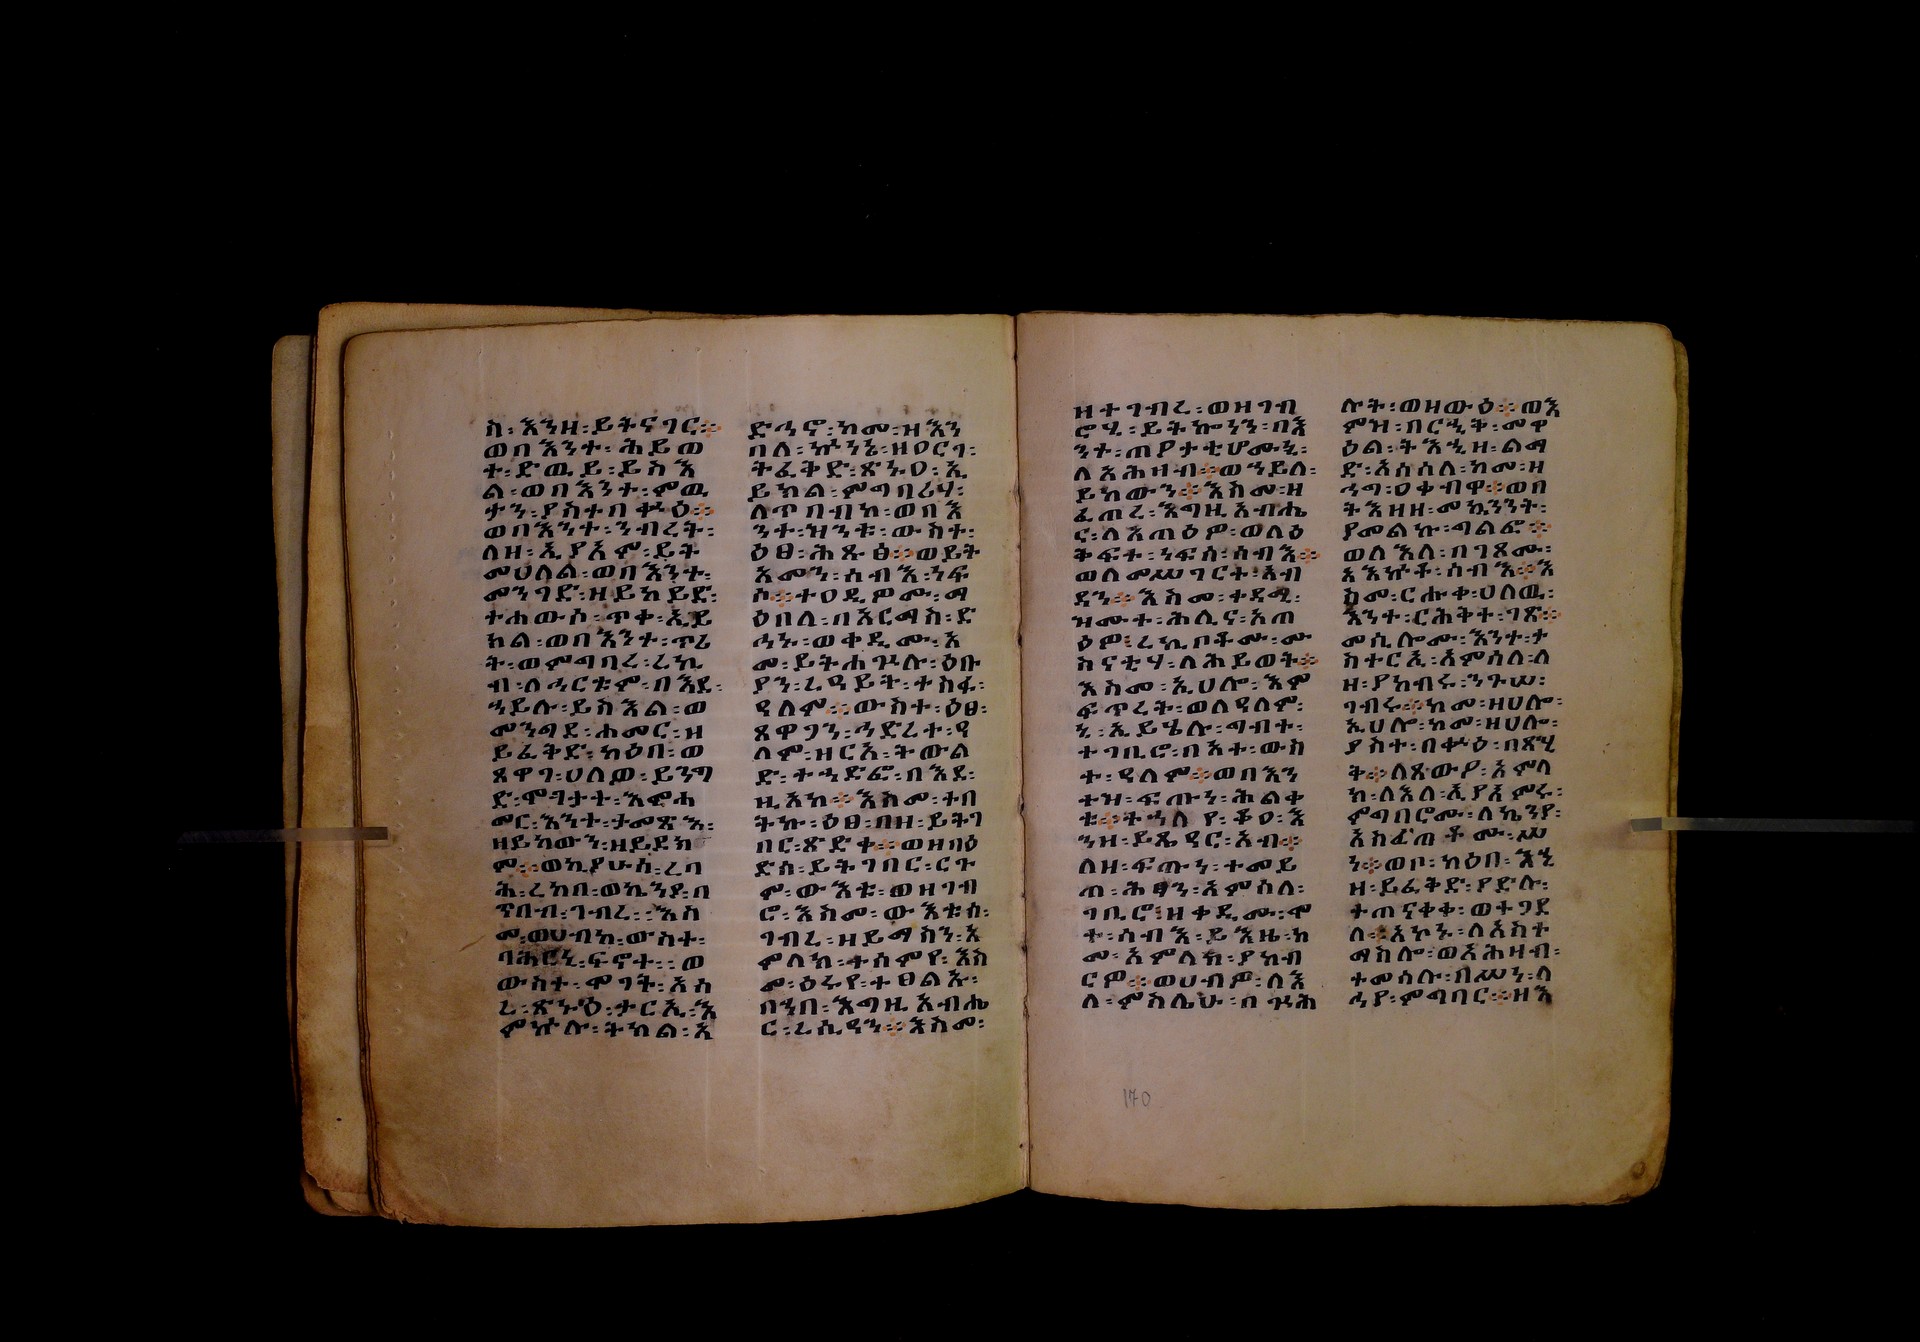 ስ፡እንዘ፡ይትናገር።
ወበእንተ፡ሕይወ
ት፡ድዉይ፡ይስእ
ል፡ወበእንተ፡ምዉ
ታን፡ያስተበቍዕ።
ወበእንተ፡ንብረት፡
ለዘ፡ኢያእምር፡ይት
መሀለል፡ወበእንተ፡
መንገድ፡ዘይከይድ፡
ተሐውሶ፡ጥቀ፡ኢይ
ክል፡ወበእንተ፡ጥሪ
ት፡ወምግባረ፡ረኪ
ብ፡ለሓርቱም፡በእደ፡
ኀይሉ፡ይስእል፡ወ
መንግደ፡ሐመር፡ዘ
ይፈቅድ፡ከዕበ፡ወ
ጸዋገ፡ሀለወ፡ይንግ
ድ፡ሞገታት፡እምሐ
መር፡እንተ፡ታመጽእ፡
ዘይከውን፡ዘይደክ
ም።ወኪያሁሰ፡ረባ
ሕ፡ረከበ፡ወኬንያ፡በ
ጥበብ፡ገብረ፡፡እስ
መ፡ወሀብከ፡ውስተ፡
ባሕርኒ፡ፍኖተ፡፡ወ
ውስተ፡ሞገት፡አሰ
ረ፡ጽኑዕ፡ታርኢ፡እ
ምኵሉ፡ትክል፡አ
ድኅኖ፡ከመ፡ዝእን
በለ፡ኵንኔ፡ዘዐርገ፡
ትፈቅድ፡ጽኑዐ፡ኢ
ይክል፡ምግበሪሃ፡
ለጥበብከ፡ወበእ
ንተ፡ዝንቱ፡ውስተ፡
ዕፀ፡ሕጹፅ።ወይት
አመን፡ሰብእ፡ነፍ
ሶ።ተዐዲዎሙ፡ማ
ዕበለ፡በአርማስ፡ድ
ኅኑ፡ወቀዲሙ፡አ
መ፡ይትሐጐሉ፡ዕቡ
ያን፡ረዓይት፡ተስፋ፡
ዓለም።ውስተ፡ዕፀ፡
ጸዋጋን፡ኀድረተ፡ዓ
ለም፡ዘርአ፡ትውል
ድ፡ተኀድፎ፡በእደ፡
ዚአከ።እስመ፡ተበ
ትኩ፡ዕፀ፡በዘ፡ይትገ
በር፡ጽድቀ።ወዘበዕ
ድሰ፡ይትገበር፡ርጉ
ም፡ውእቱ፡ወዘገብ
ሮ፡እስመ፡ውእቱሰ፡
ገብረ፡ዘይማስን፡አ
ምላክ፡ተሰምየ፡እስ
መ፡ዕሩየ፡ተፀልኡ፡
በኀበ፡እግዚአብሔ
ር፡ረሲዓን።እስመ፡
ዘተገብረ፡ወዘገብ
ሮሂ፡ይትኰነን፡በእ
ንተ፡ጠዖታቲሆሙኒ፡
ለአሕዛብ።ወኀይለ፡
ይከውን።እስመ፡ዘ
ፈጠረ፡እግዚአብሔ
ር፡ለአጠዕዎ፡ወለዕ
ቅፍተ፡ነፍሰ፡ሰብእ።
ወለመሥገርተ፡አብ
ዳን።እስመ፡ቀዳሚ፡
ዝሙተ፡ሕሊና፡አጠ
ዕዎ፡ረኪቦቶሙ፡ሙ
ስናቲሃ፡ለሕይወት።
እስመ፡ኢሀሎ፡እም
ፍጥረት፡ወለዓለም፡
ኒ፡ኢይሄሉ፡ግብት፡
ተገቢሮ፡በአተ፡ውስ
ተ፡ዓለም።ወበእን
ተዝ፡ፍጡነ፡ሕልቀ
ቱ።ትኄለየ፡ቆዐ፡እ
ንዘ፡ይጼዓር፡አብ።
ለዘ፡ፍጡነ፡ተመይ
ጠ፡ሕፃን፡አምሳለ፡
ገቢሮ፡ዘቀዲሙ፡ሞ
ተ፡ሰብእ፡ይእዜ፡ከ
መ፡አምላክ፡ያከብ
ርዎ።ወሀብዎ፡ለእ
ለ፡ምስሌሁ፡በጕሕ
ሉት፡ወዛውዕ።ወእ
ምዝ፡በርኂቅ፡መዋ
ዕል፡ትእኂዘ፡ልማ
ድ፡አሰሰለ፡ከመ፡ዘ
ኅግ፡ዐቀብዋ።ወበ
ትእዛዘ፡መኳንንት፡
ያመልኩ፡ግልፎ።
ወለእለ፡በገጾሙ፡
አእኵቶ፡ሰብእ።እ
ስመ፡ርሑቀ፡ሀለዉ፡
እንተ፡ርሕቅተ፡ገጽ።
መሲሎሙ፡እንተ፡ታ
ስተርኢ፡አምሳለ፡ለ
ዘ፡ያከብሩ፡ንጉሠ፡
ገብሩ።ከመ፡ዘሀሎ፡
ኢሀሎ፡ከመ፡ዘሀሎ፡
ያስተ፡በቍዕ፡በጽሂ
ቅ።ለጽውዖ፡አምላ
ክ፡ለእለ፡ኢያአምሩ፡
ምግበሮሙ፡ለኬንያ፡
አስፈጠቶሙ፡ሠ
ን።ወቦ፡ከዕበ፡እኂ
ዘ፡ይፈቅድ፡ያድሉ፡
ተጠናቀቀ፡ወተጋደ
ለ።አኮኑ፡ለእስት
ማስሎ፡ወአሕዛብ፡
ተመሰሉ፡በሠነ፡ላ
ኅየ፡ምግባር።ዘእ
170